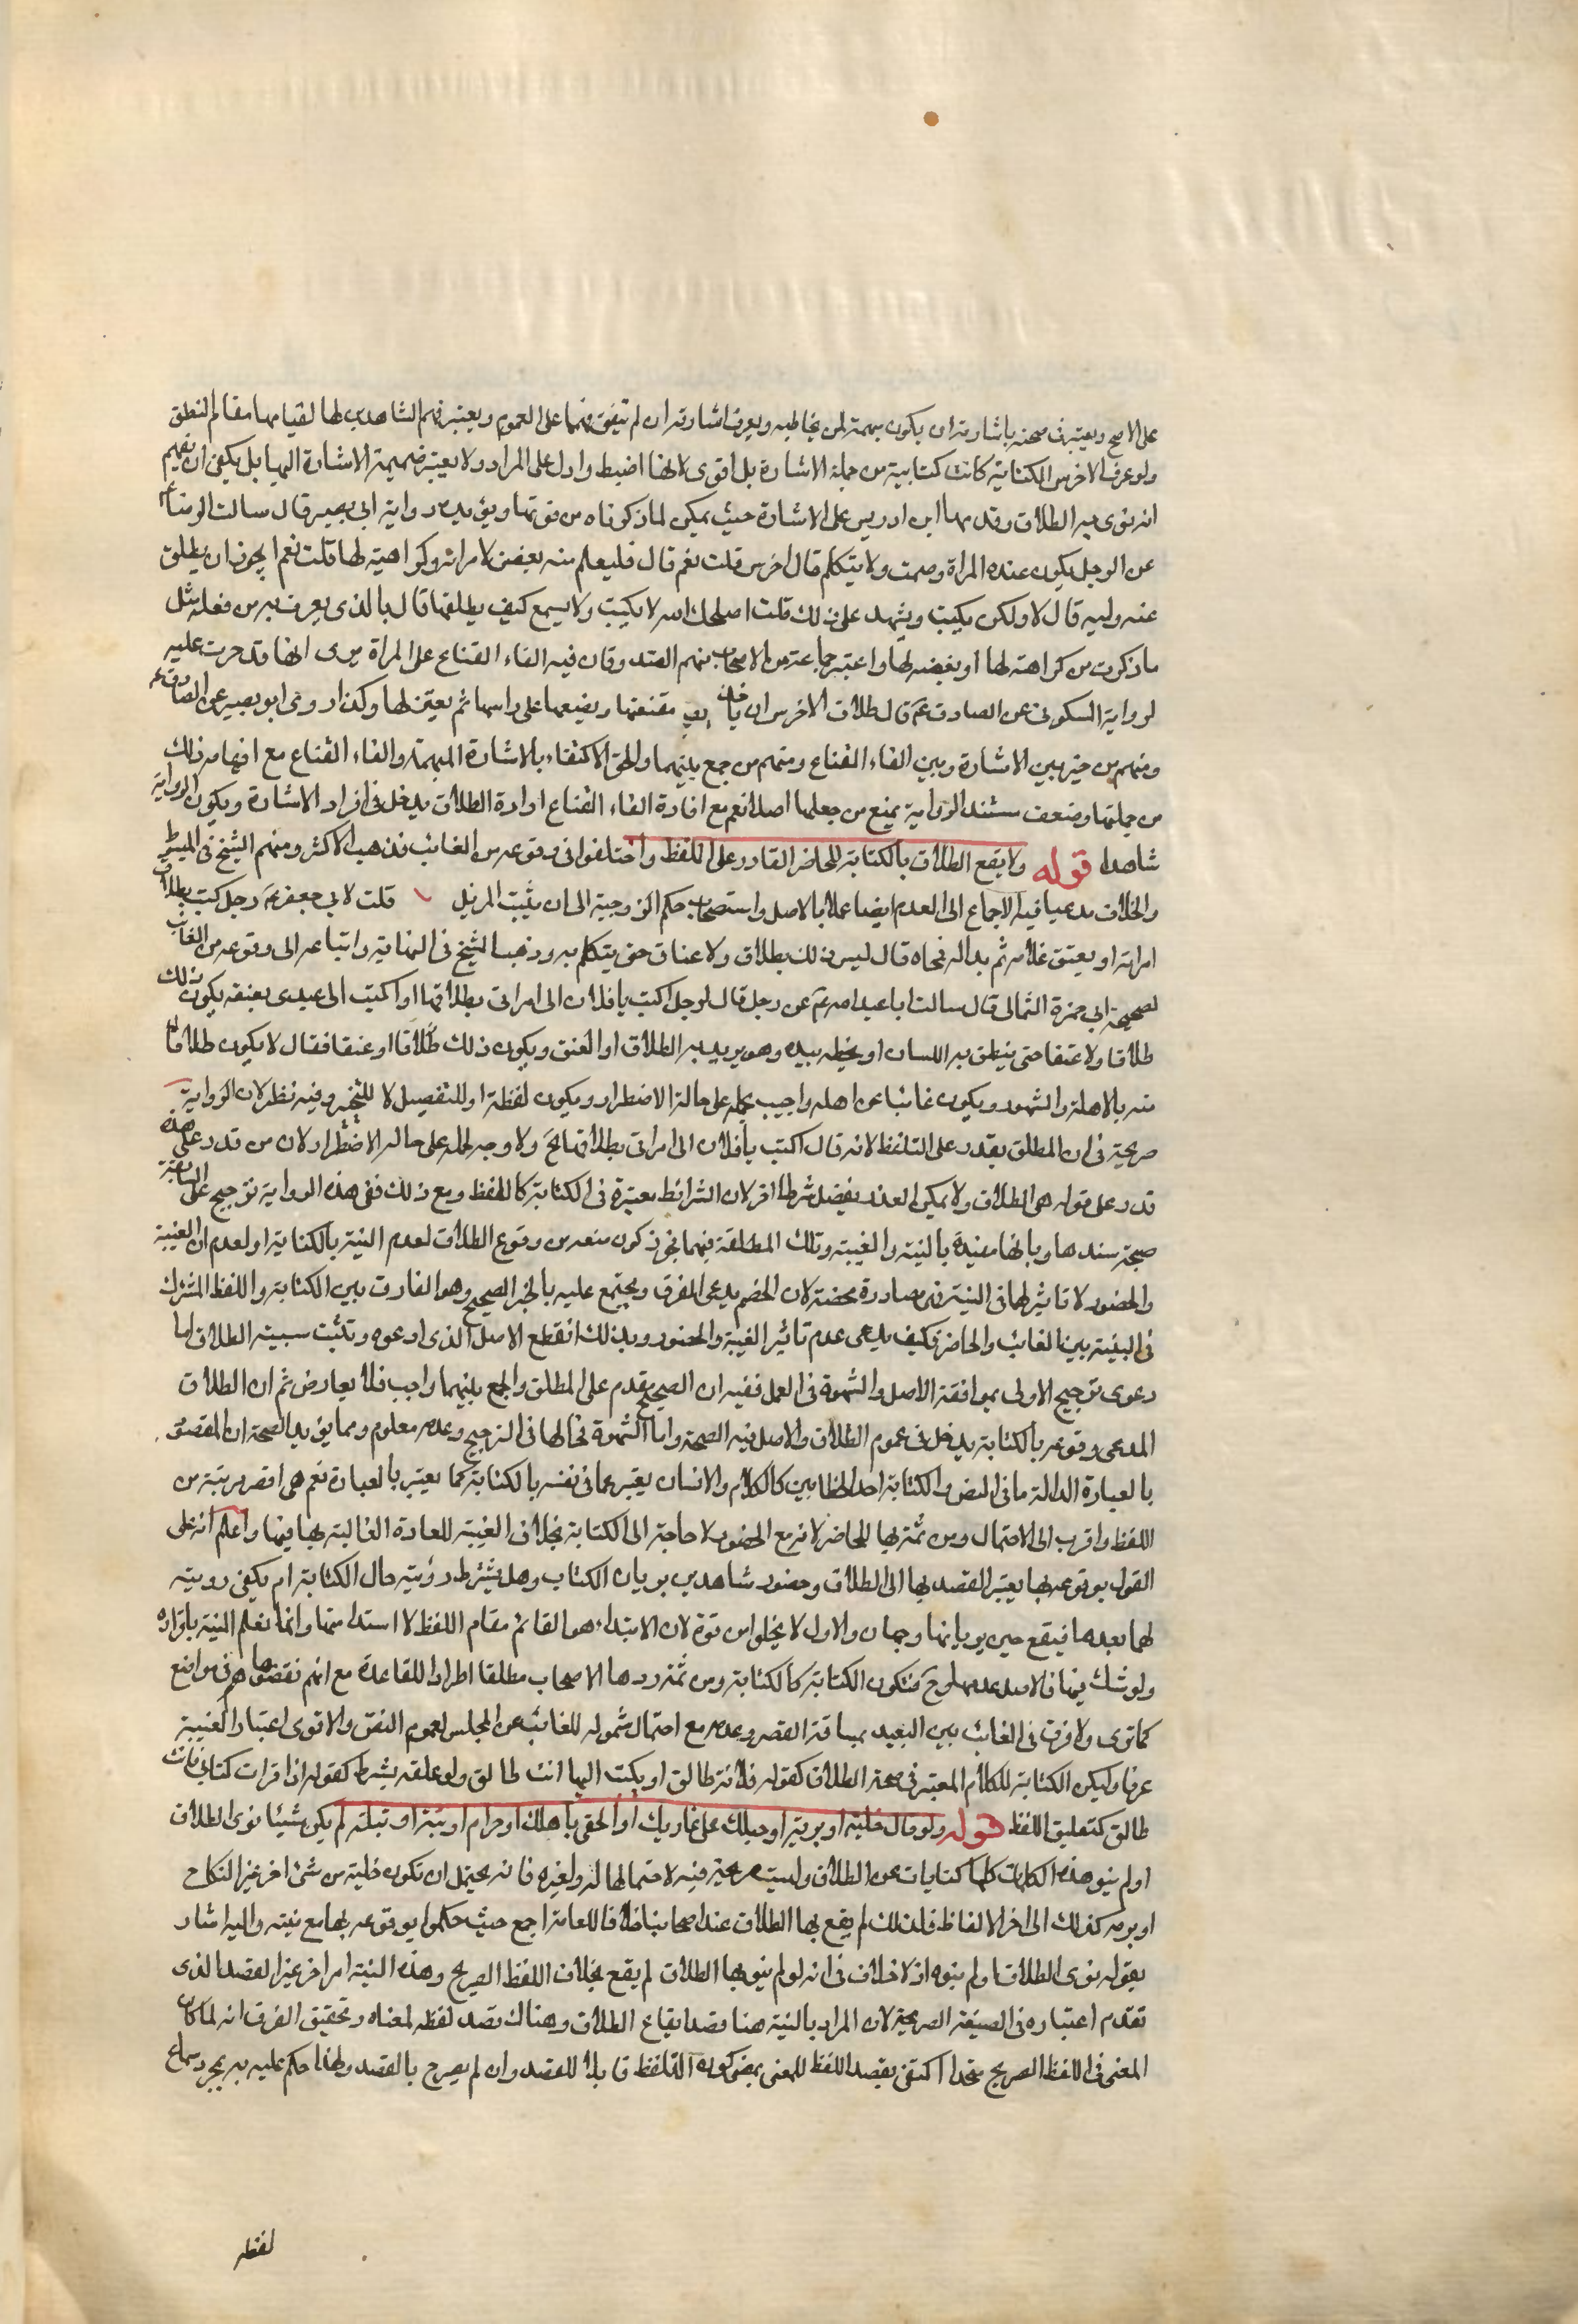 على الاصح ويعتبر في صحته باشارته ان يكون مفهمة لمن يخاطبه ويعرف اشارته ان لم تتفق فهمها على العموم ويعتبر فهم الشاهدين لها لقيامها مقام النطق
ولو عرف الاخرس الكتابة كانت كتابته من جملة الاشارة بل اقوى لانها اضبط وادل على المراد ولا يعتبر ضميمة الاشارة اليها بل يكفى ان تفهيم
انه نوى به الطلاق وقدمها ابن ادريس على الاشارة حيث يمكن لما ذكرناه من قوتها ويؤيده رواية ابى بصير قال سالت الرضا ع
عن الرجل يكون عنده المراة وصمت ولا يتكلم قال اخرس قلت نعم قال فليعلم منه بغض لامراته وكراهية لها قلت نعم ايجوز ان يطلق
عنه وليه قال لا ولكن يكتب ويشهد على ذلك قلت اصلحك الله لا يكتب ولا يسمع كيف يطلقها قال بالذى يعرف به من فعله مثل
ما ذكرت من كراهته لها او بغضه لها واعتبر جماعة من الاصحاب منهم الصدوقان فيه القاء القناع على المراة يرى انها قد حرمت عليه
لرواية السكونى عن الصادق ع قال طلاق الاخرس ان ياخذ مقنعتها ويضعها على راسها ثم يعتزلها وكذا روى ابو بصير عن الصادق ع
ومنهم من خير بين الاشارة وبين القاء القناع ومنهم من جمع بينهما والحق الاكتفاء بالاشارة المفهمة والقاء القناع مع افهامه ذلك
من جملتها وضعف مستند الرواية يمنع من جعلها اصلا نعم مع افادة القاء القناع ارادة الطلاق يدخل في افراد الاشارة ويكون الرواية
شاهدا قوله ولا يقع الطلاق بالكتابة للحاضر القادر على اللفظ واختلفوا فى وقوعه من الغائب فذهب الاكثر ومنهم الشيخ فى المبسوط
والخلاف مدعيا فيه الاجماع الى العدم ايضا عملا بالاصل واستصحاب حكم الزوجية الى ان يثبت المزيل قلت لابى جعفر ع رجل كتب بطلاق
امراته او يعتق غلامه ثم بدا له فمحاه قال ليس ذلك بطلاق ولا عتاق حتى يتكلم به وذهب الشيخ فى النهاية واتباعه الى وقوعه من الغائب
لصحيحة ابى حمزة الثمالى قال سالت ابا عبد الله ع عن رجل قال لرجل اكتب يا فلان الى امراتى بطلاقها او اكتب الى عبدى بعتقه يكون ذلك
طلاقا ولا عتقا حتى ينطق به اللسان او يخطه بيده وهو يريد به الطلاق او العتق ويكون ذلك طلاقا او عتقا فقال لا يكون طلاقا
منه بالاهلة والشهود ويكون غائبا عن اهله واجيب بحمله على حالة الاضطرار ويكون لفظة او للتفصيل لا للتخيير وفيه نظر لان الرواية
صريحة فى ان المطلق يقدر على التلفظ لانه قال اكتب يا فلان الى امراتى بطلاقها الخ ولا وجه لحمله على حالة الاضطرار لان من قدر على هذه
قدر على قوله هى الطلاق ولا يمكن العذر بفضل شرط اخر لان الشرائط معتبرة فى الكتابة كاللفظ ومع ذلك ففى هذه الرواية ترجيح على السابقة
صحة سندها وبانها مقيدة بالنية والغيبة وتلك المطلقة فيهما نجوز كون منعه من وقوع الطلاق لعدم النية بالكتابة او لعدم ان الغيبة
والحضور لا تاثير لها فى النية فى مصادرة محضة لان الخصم يدعى الفرق ويحتج عليه بالخبر الصحيح وهو الفارق بين الكتابة واللفظ المشترك
فى البينة بين الغائب والحاضر فكيف يدعى عدم تاثير الغيبة والحضور وبذلك انقطع الاصل الذى ادعوه وتثبت سببية الطلاق اما
دعوى ترجيح الاولى بموافقة الاصل والشهرة فى العمل ففيه ان الصحيح مقدم على المطلق والجمع بينهما واجب فلا يعارض ثم ان الطلاق
المدعى وقوعه بالكتابة يدخل فى عموم الطلاق والاصل فيه الصحة واما الشهرة فحالها فى الترجيح وعدمه معلوم ومما يؤيد الصحة ان المقصود
بالعبارة الدالة ما فى النفس والكتابة احد الخطابين كالكلام والانسان يعبر عما فى نفسه بالكتابة كما يعبر بالعبارة نعم هى اقصر مرتبة من
اللفظ واقرب الى الاحتمال ومن ثمة لها للحاضر لانه مع الحضور لا حاجة الى الكتابة بخلاف الغيبة للعادة الغالبة بها فيها واعلم انه على
القول بوقوعه بها يعتبر القصد بها الى الطلاق وحضور شاهدين يريان الكتاب وهل يشترط رؤيته حال الكتابة ام يكفى رويته
لهما بعدها فيقع حين يريانها وجهان والاول لا يخلوا من قوة لان الابتداء هو القائم مقام اللفظ لا استدامتها وانما تعلم النية باقراره
ولو شك فيها فالاصل عدمها وح فتكون الكتابة كالكتابة ومن ثمة ردها الاصحاب مطلقا اطرادا للقاعدة مع انهم نقضوها فى مواضع
كما ترى ولا فرق فى الغائب بين البعيد بمسافة القصر وعدمه مع احتمال شموله للغائب عن المجلس لعموم النص والاقوى اعتبار الغيبة
عرفا وليكن الكتابة للكلام المعتبر فى صحة الطلاق كقوله فلانة طالق او يكتب اليها انت طالق ولو علقه بشرط كقوله اذا قرات كتابى فانت
طالق كتعليق اللفظ قوله ولو قال خلية او برية او حبلك على غاربك او الحقى باهلك او حرام او بتة او بتلة لم يكن شيئا نوى الطلاق
او لم ينو هذه الكلمات كلها كنايات عن الطلاق وليست صريحة فيه لاحتمالها له ولغيره فانه يحتمل ان تكون خلية من شئ اخر غير النكاح
او برية كذلك الى اخر الالفاظ فلذلك لم يقع بها الطلاق عند اصحابنا خلافا للعامة اجمع حيث حكموا بوقوعه بها مع نيته واليه اشار
بقوله نوى الطلاق او لم ينوه اذ لا خلاف فى انه لو لم ينو بها الطلاق لم يقع بخلاف اللفظ الصريح وهذه النية امر اخر غير القصد الذى
تقدم اعتباره فى الصيغة الصريحة لان المراد بالنية هنا قصد ايقاع الطلاق وهناك قصد لفظه لمعناه وتحقيق الفرق انه لما كان
المعنى فى اللفظ الصريح متحدا اكتفى بقصد اللفظ للمعنى بمعنى كون المتلفظ قابلا للقصد وان لم يصرح بالقصد ولهذا حكم عليه به بمجرد سماع
لفظه